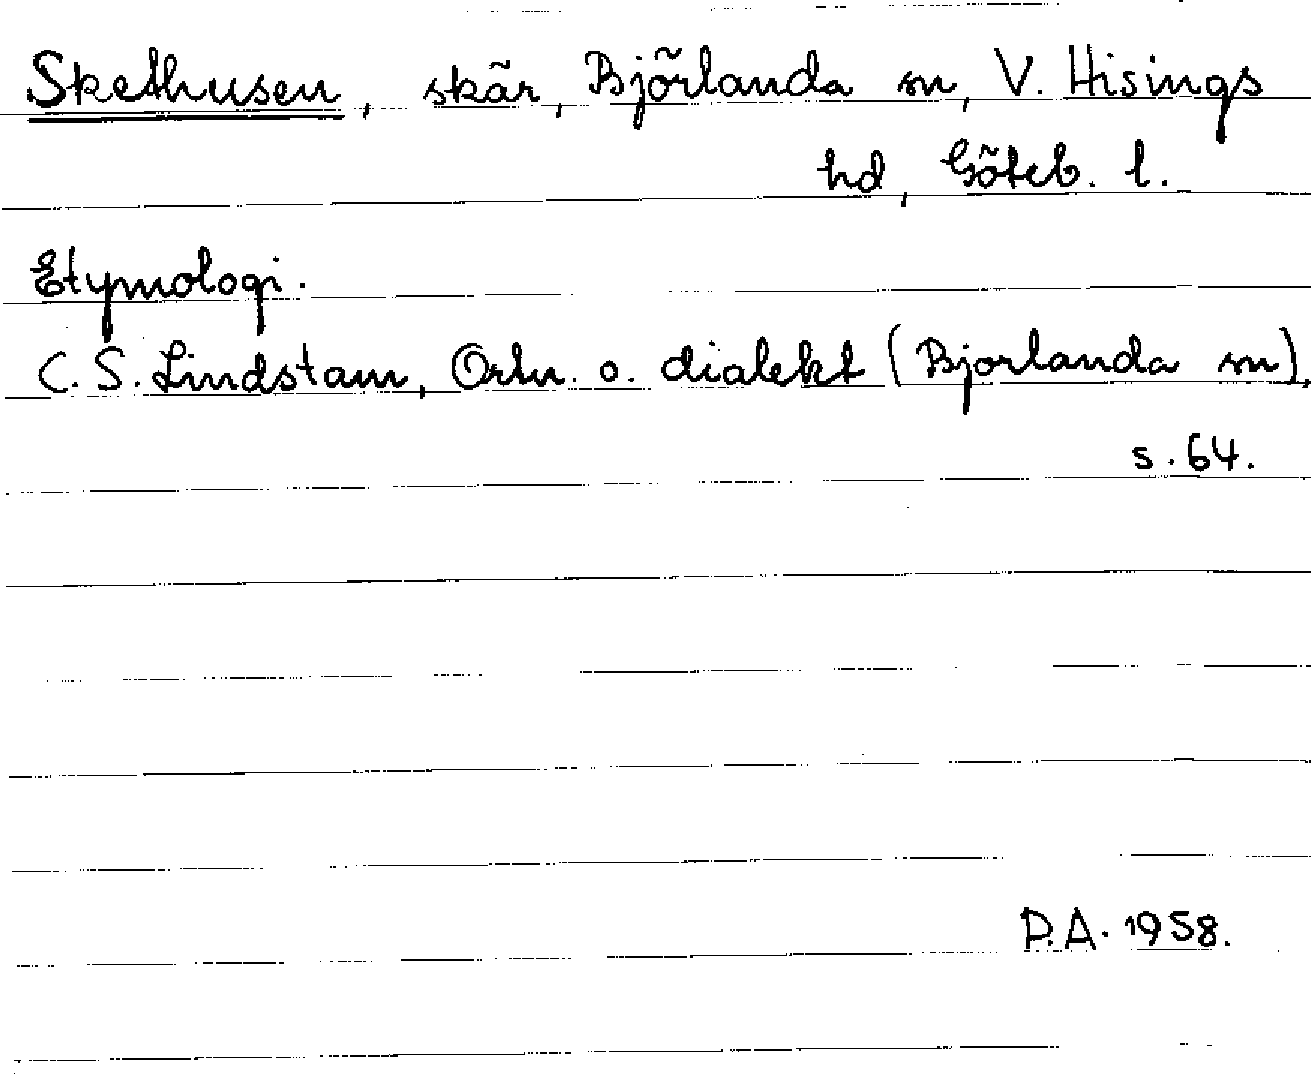 Skethusen, skär, Björlanda sn, V. Hisings
hd, Göteb. l.
Etymologi.
C. S. Lindstam, Ortn. o. dialekt (Bjorlanda sn),
s. 64.
P.A. 1958.